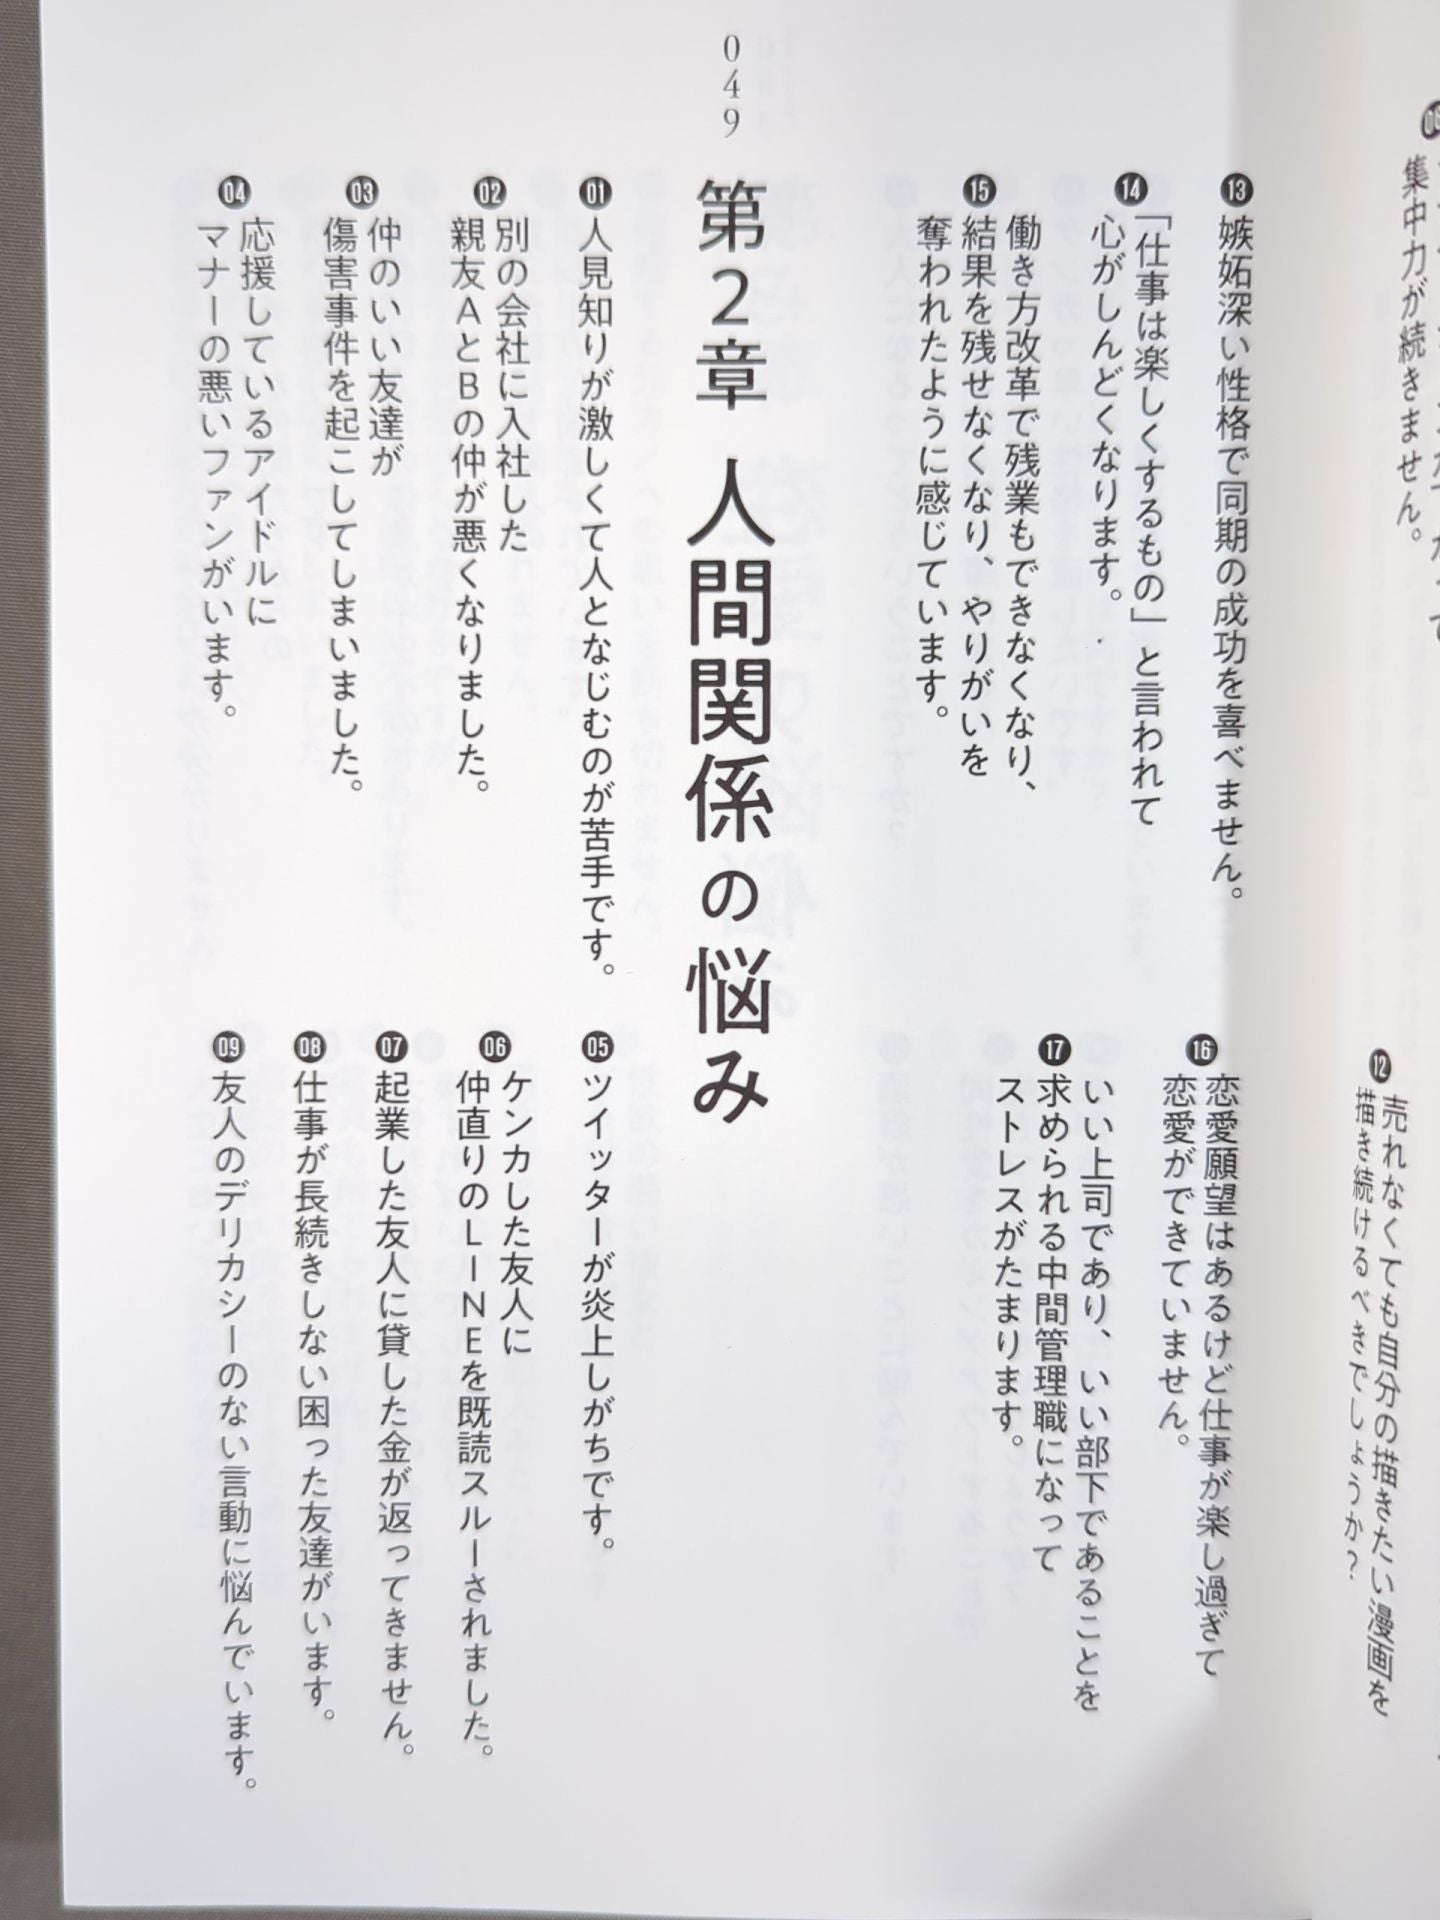 集中力が続きません。
⓬ 売れなくても自分の描きたい漫画を
描き続けるべきでしょうか？
⓭ 嫉妬深い性格で同期の成功を喜べません。
⓮ 「仕事は楽しくするもの」と言われて
心がしんどくなります。
⓯ 働き方改革で残業もできなくなり、
結果を残せなくなり、やりがいを
奪われたように感じています。
⓰ 恋愛願望はあるけど仕事が楽し過ぎて
恋愛ができていません。
⓱ いい上司であり、いい部下であることを
求められる中間管理職になって
ストレスがたまります。
049
第2章 人間関係の悩み
01 人見知りが激しくて人となじむのが苦手です。
02 別の会社に入社した
親友AとBの仲が悪くなりました。
03 仲のいい友達が
傷害事件を起こしてしまいました。
04 応援しているアイドルに
マナーの悪いファンがいます。
05 ツイッターが炎上しがちです。
06 ケンカした友人に
仲直りのLINEを既読スルーされました。
07 起業した友人に貸した金が返ってきません。
08 仕事が長続きしない困った友達がいます。
09 友人のデリカシーのない言動に悩んでいます。